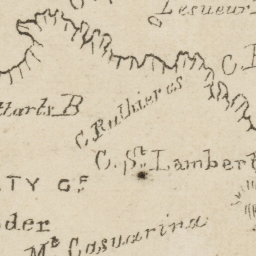 Lesueur
C.
Harts B
C. Rulhieres
C. St. Lambert
TY OF
der
Mt. Casuarina